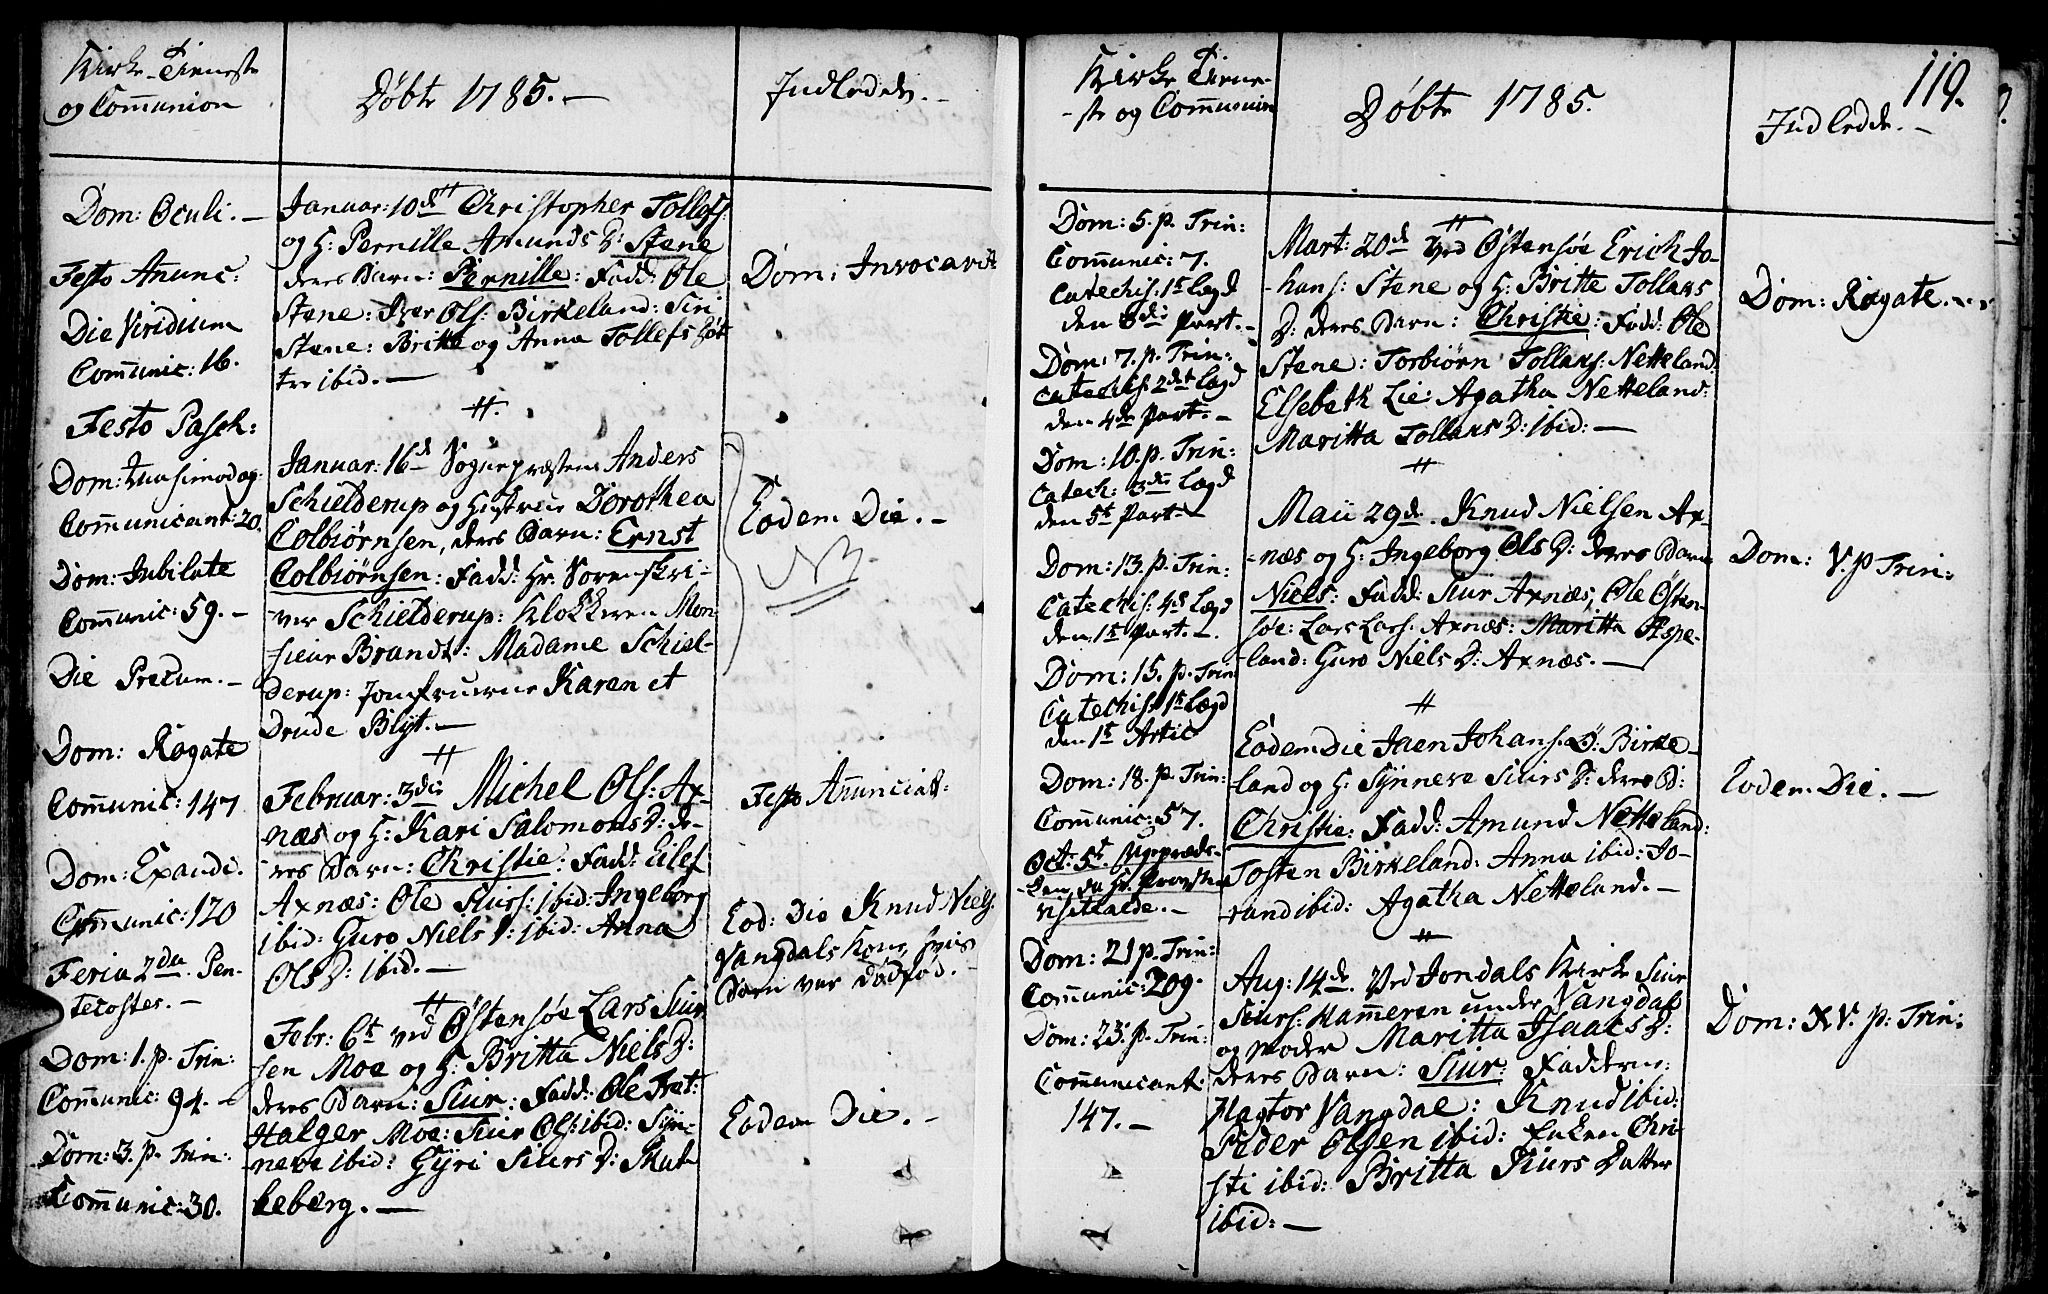 Kirke-Tieneste
og Com̄union
Døbte 1785.-
Indledede.-
Dom: Oculi.-
Festo An̄unc:
Die Viridium
Com̄unic: 16.
Festo Pasch:
Dom: Quasimodog:
Com̄unicant: 20.
Dom: Jubilate
Com̄unic: 59.-
Die Precum.-
Dom: Rogate
Com̄unic: 147
Dom: Exaudi.
Com̄unic: 120
Feria 2da Pen-
tecostes.-
Dom: 1. p. Trin:
Com̄unic: 94.-
Dom: 3. p. Trin:
Com̄unic: 30.
Januar: 10de Christopher Tollefs:
og H: Pernille Amunds D: Stene
deres Barn: Pernille: Fadd: Ole
Stene: Iver Ols: Birkeland: Siri
Stene: Britte og Anna Tollefs Døt
tre ibid.-
#.
Januar: 16de Sognepræsten Anders
Schielderup og Hustrue Dorothea
Colbiørnsen, deres Barn: Ernst
Colbiørnsen: Fadd: Hr. Sorenskri-
ver Schielderup: Klokkeren Mon-
sieur Brandt: Madame Schiel-
derup: Jomfruerne Karen et
Drude Blÿt.-
#
Februar: 3die Michel Ols: Ax-
næs og H: Kari Salomons D: de-
res Barn: Christie: Fadd: Eilef
Axnæs: Ole Siurs: ibid: Ingeborg
ibid: Guro Niels D: ibid: Anna
Ols D: ibid.-
#
Febr: 6t ved Østensøe Lars Siur
sen Moe og H: Britta Niels D:
deres Barn: Siur: Fadd: Ole Tret:
Halger Moe: Siur Ols: ibid: Sÿn-
neve ibid: Gÿri Siurs D: Skut
leberg.-
Dom: Invocavit
Eodem Die.-
NB
Festo An̄unciat:
Eod: Die Knud Niels:
Vangdals Kone, hvis
Barn var Dødfød.-
Eodem Die.-
Kirke Tiene-
-ste og Com̄union
Døbte 1785.
119.
Indledde.-
Dom: 5. p. Trin:
Com̄unic: 7.
Catechis: 1st Lægd
den 3die Part.-
Dom: 7. p. Trin:
Catechis: 2det Lægd
den 4de Part.-
Dom: 10. p. Trin:
Catech: 3die Lægd
den 5t Part.-
Dom: 13. p. Trin:
Catechis: 4de Lægd
den 1st Part.-
Dom: 15. p. Trin
Catechis: 1st Lægd
den 1st Artic
Dom: 18. p. Trin:
Com̄unic: 57.
Oct: 5t Ugepræds-
-ken, da Hr. Provsten
visiterede.-
Dom: 21 p. Trin:
Com̄unic: 209.
Dom: 23. p. Trin:
Com̄unicant:
147.-
#
Mart: 20de ved Østensøe Erich Jo-
-hans: Stene og H: Britte Tollaks
D: deres Barn: Christie: Fadd: Ole
Stene: Torbiørn Tollaks: Netteland:
Elsebeth Lie: Agatha Netteland:
Maritta Tollaks D: ibid:-
#
Maii 29de Knud Nielsen Ax-
-næs og H: Ingeborg Ols D: deres Barn
Niels: Fadd: Siur Axnæs, Ole Østen-
søe: Lars Lars: Axnæs: Maritta Aspe-
-land: Guro Niels D: Axnæs.-
#
Eodem Die Jaen Johans. Ø: Birke-
land og H: Sÿnneve Siurs D: deres B:
Christie: Fadd: Amund Netteland:
Tosten Birkeland: Anna ibid: Jo-
rand ibid: Agatha Netteland.-
#
Aug: 14de. Ved Jondals Kirke Siur
Siurs: Hammeren under Vangdal
og Moder Maritta Isaacs D:
deres Barn: Siur: Fadderne:
Hagtor Vangdal: Knud ibid:
Peder Olsen ibid: Enken Chri-
sti ibid: Britta Siurs Datter
ibid:-
Dom: Rogate.-
Dom: V. p Trin:
Eodem Die.-
Dom: XV. p. Trin: